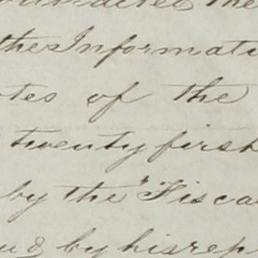 the
other Informati
otes of the
twenty first
by the "Fisca
& by his rep